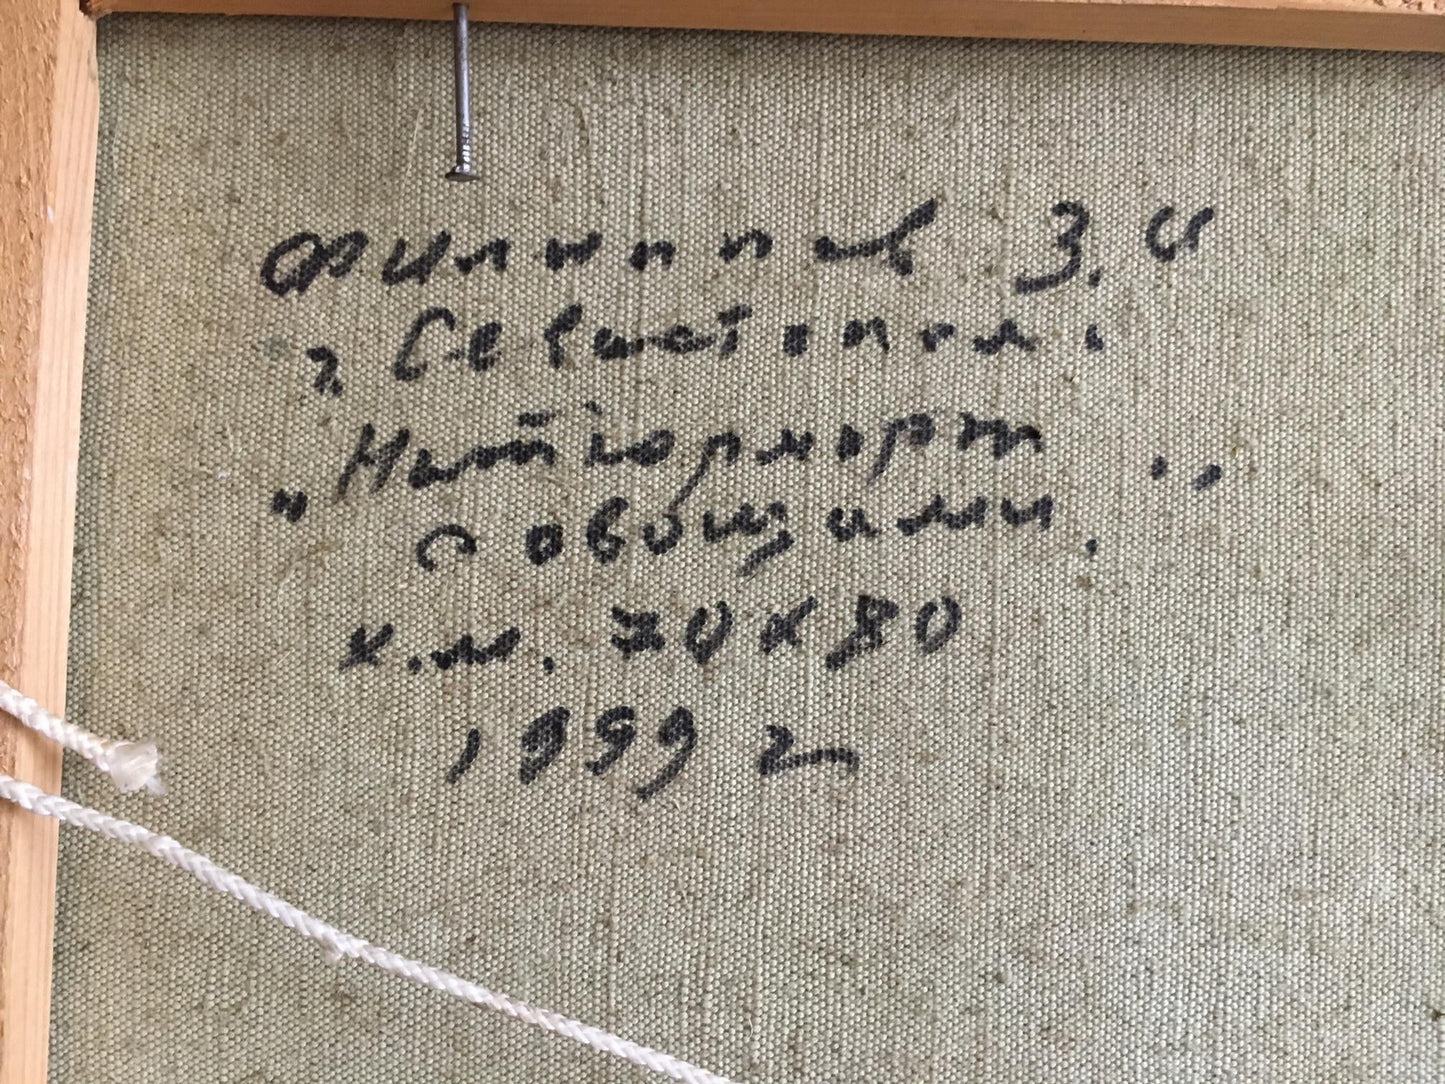 Филиппов З. И
г. Севастополь
"Натюрморт "
с овощами.
х.м. 70 х 80
1999 г